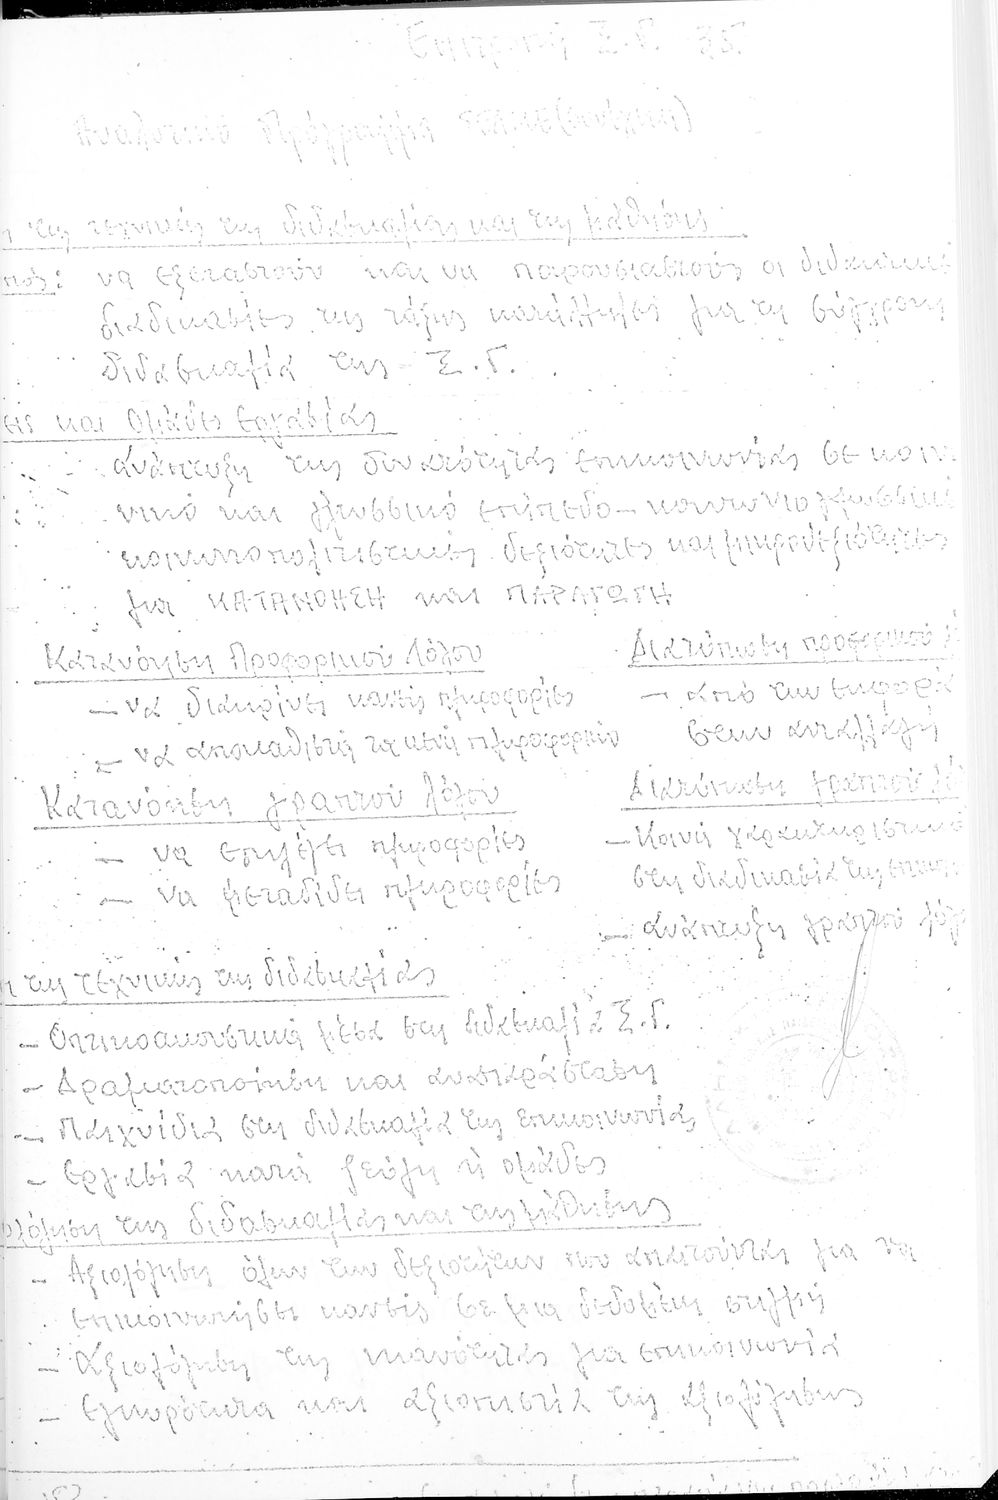 Επιτροπή Ξ.Γ. 35
Αναλυτικό Πρόγραμμα (συνέχεια)
τις τεχνικές της διδασκαλίας και της μάθησης
πός: να εξεταστούν και να παρουσιαστούς οι διδακτικέ
διαδικασίες της τάξης κατάλληλες για τη σύγχρονη
διδασκαλία της Ξ.Γ.
εις και ομάδες εργασίας
ανάπτυξη της δυνατότητας επικοινωνίας σε κοιν
νικό και γλωσσικό επίπεδο - κοινωνιογλωσσικέ
κοινωνιοπολιτιστικές δεξιότητες και μικροδεξιότητες
για ΚΑΤΑΝΟΗΣΗ και ΠΑΡΑΓΩΓΗ
Κατανόηση Προφορικού λόγου
- να διακρίνει κανείς πληροφορίες
- να αποκαθιστά τα κενά πληροφοριών
Διατύπωση προφορικού λ
- από την εκφορά
στην ανταλλαγή
Κατανόηση γραπτού λόγου
- να επιλέγει πληροφορίες
- να μεταδίδει πληροφορίες
Διατύπωση γραπτού λό
- Κοινά χαρακτηριστικά
στη διαδικασία της
- ανάπτυξη γραπτού λόγ
τις τεχνικές της διδασκαλίας
- Οπτικοακουστικά μέσα στη διδασκαλία Ξ.Γ.
- Δραματοποίηση και αναπαράσταση
- Παιχνίδια στη διδασκαλία της επικοινωνίας
- Εργασία κατά ζεύγη ή ομάδες
ολόγηση της διδασκαλίας και της μάθησης
- Αξιολόγηση όλων των δεξιοτήτων που απαιτούνται για να
επικοινωνήσει κανείς σε μια δεδομένη στιγμή
- Αξιολόγηση της ικανότητας για επικοινωνία
- Εγκυρότητα και αξιοπιστία της αξιολόγησης